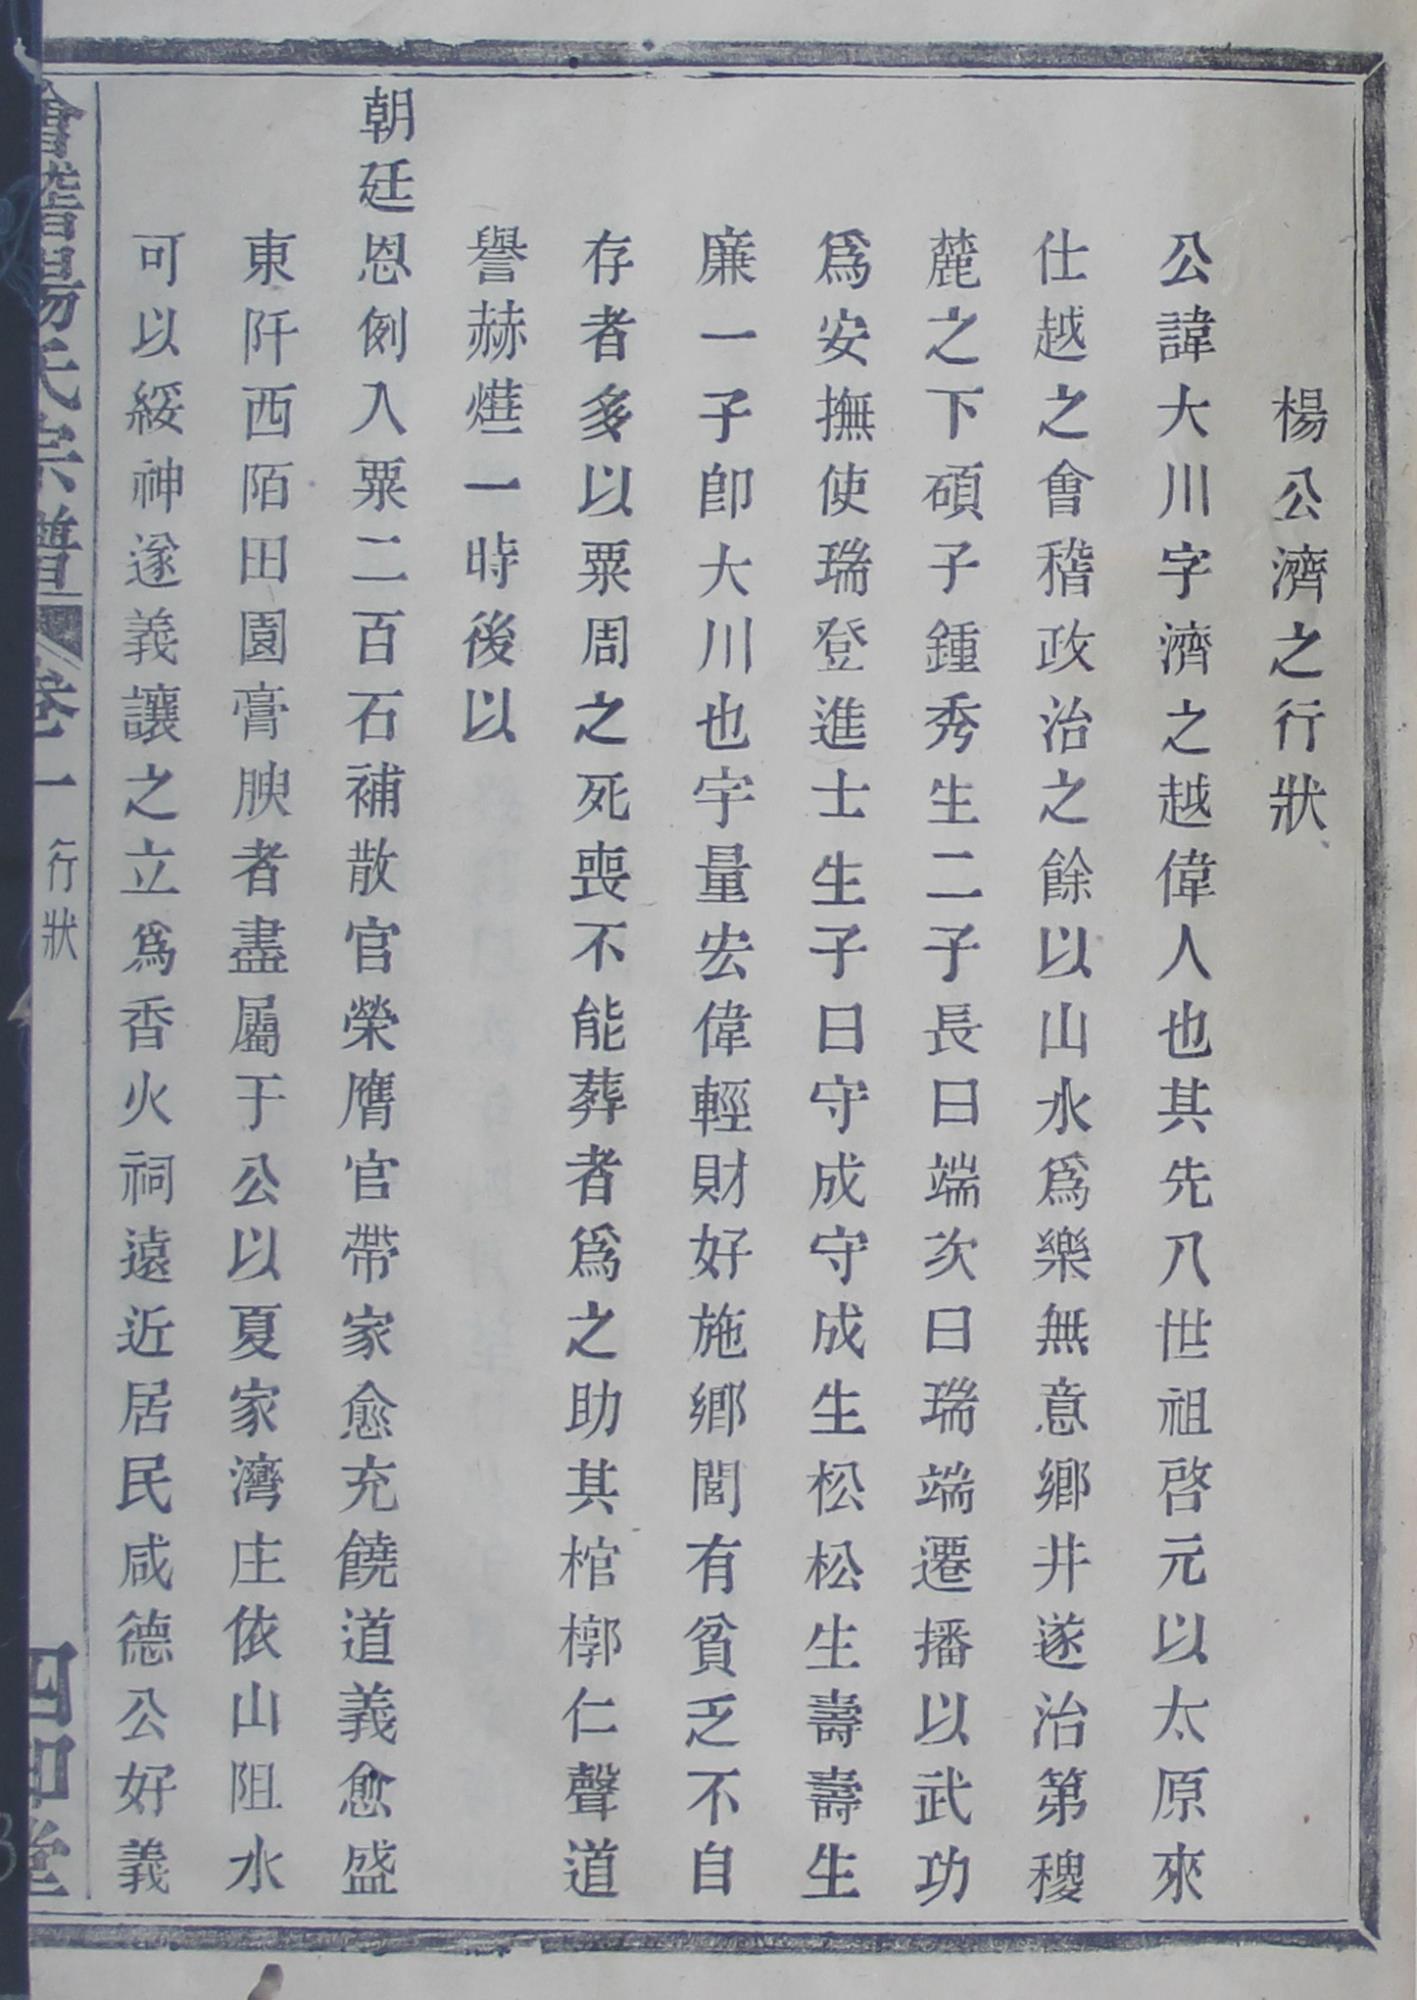 楊公濟之行狀
公諱大川字濟之越偉人也其先八世祖啓元以太原來
仕越之會稽政治之餘以山水爲樂無意鄉井遂治第稷
麓之下碩子鍾秀生二子長曰端次曰瑞端遷播以武功
爲安撫使瑞登進士生子曰守成守成生松松生壽壽生
廉一子卽大川也宇量宏偉輕財好施鄉閭有貧乏不自
存者多以粟周之死喪不能葬者爲之助其棺槨仁聲道
譽赫燁一時後以
朝廷恩例入粟二百石補散官榮膺官帶家愈充饒道義愈盛
東阡西陌田園膏腴者盡屬于公以夏家灣庄依山阻水
可以綏神遂義讓之立爲香火祠遠近居民咸德公好義
會稽楊氏宗譜 卷一 行狀 四知堂